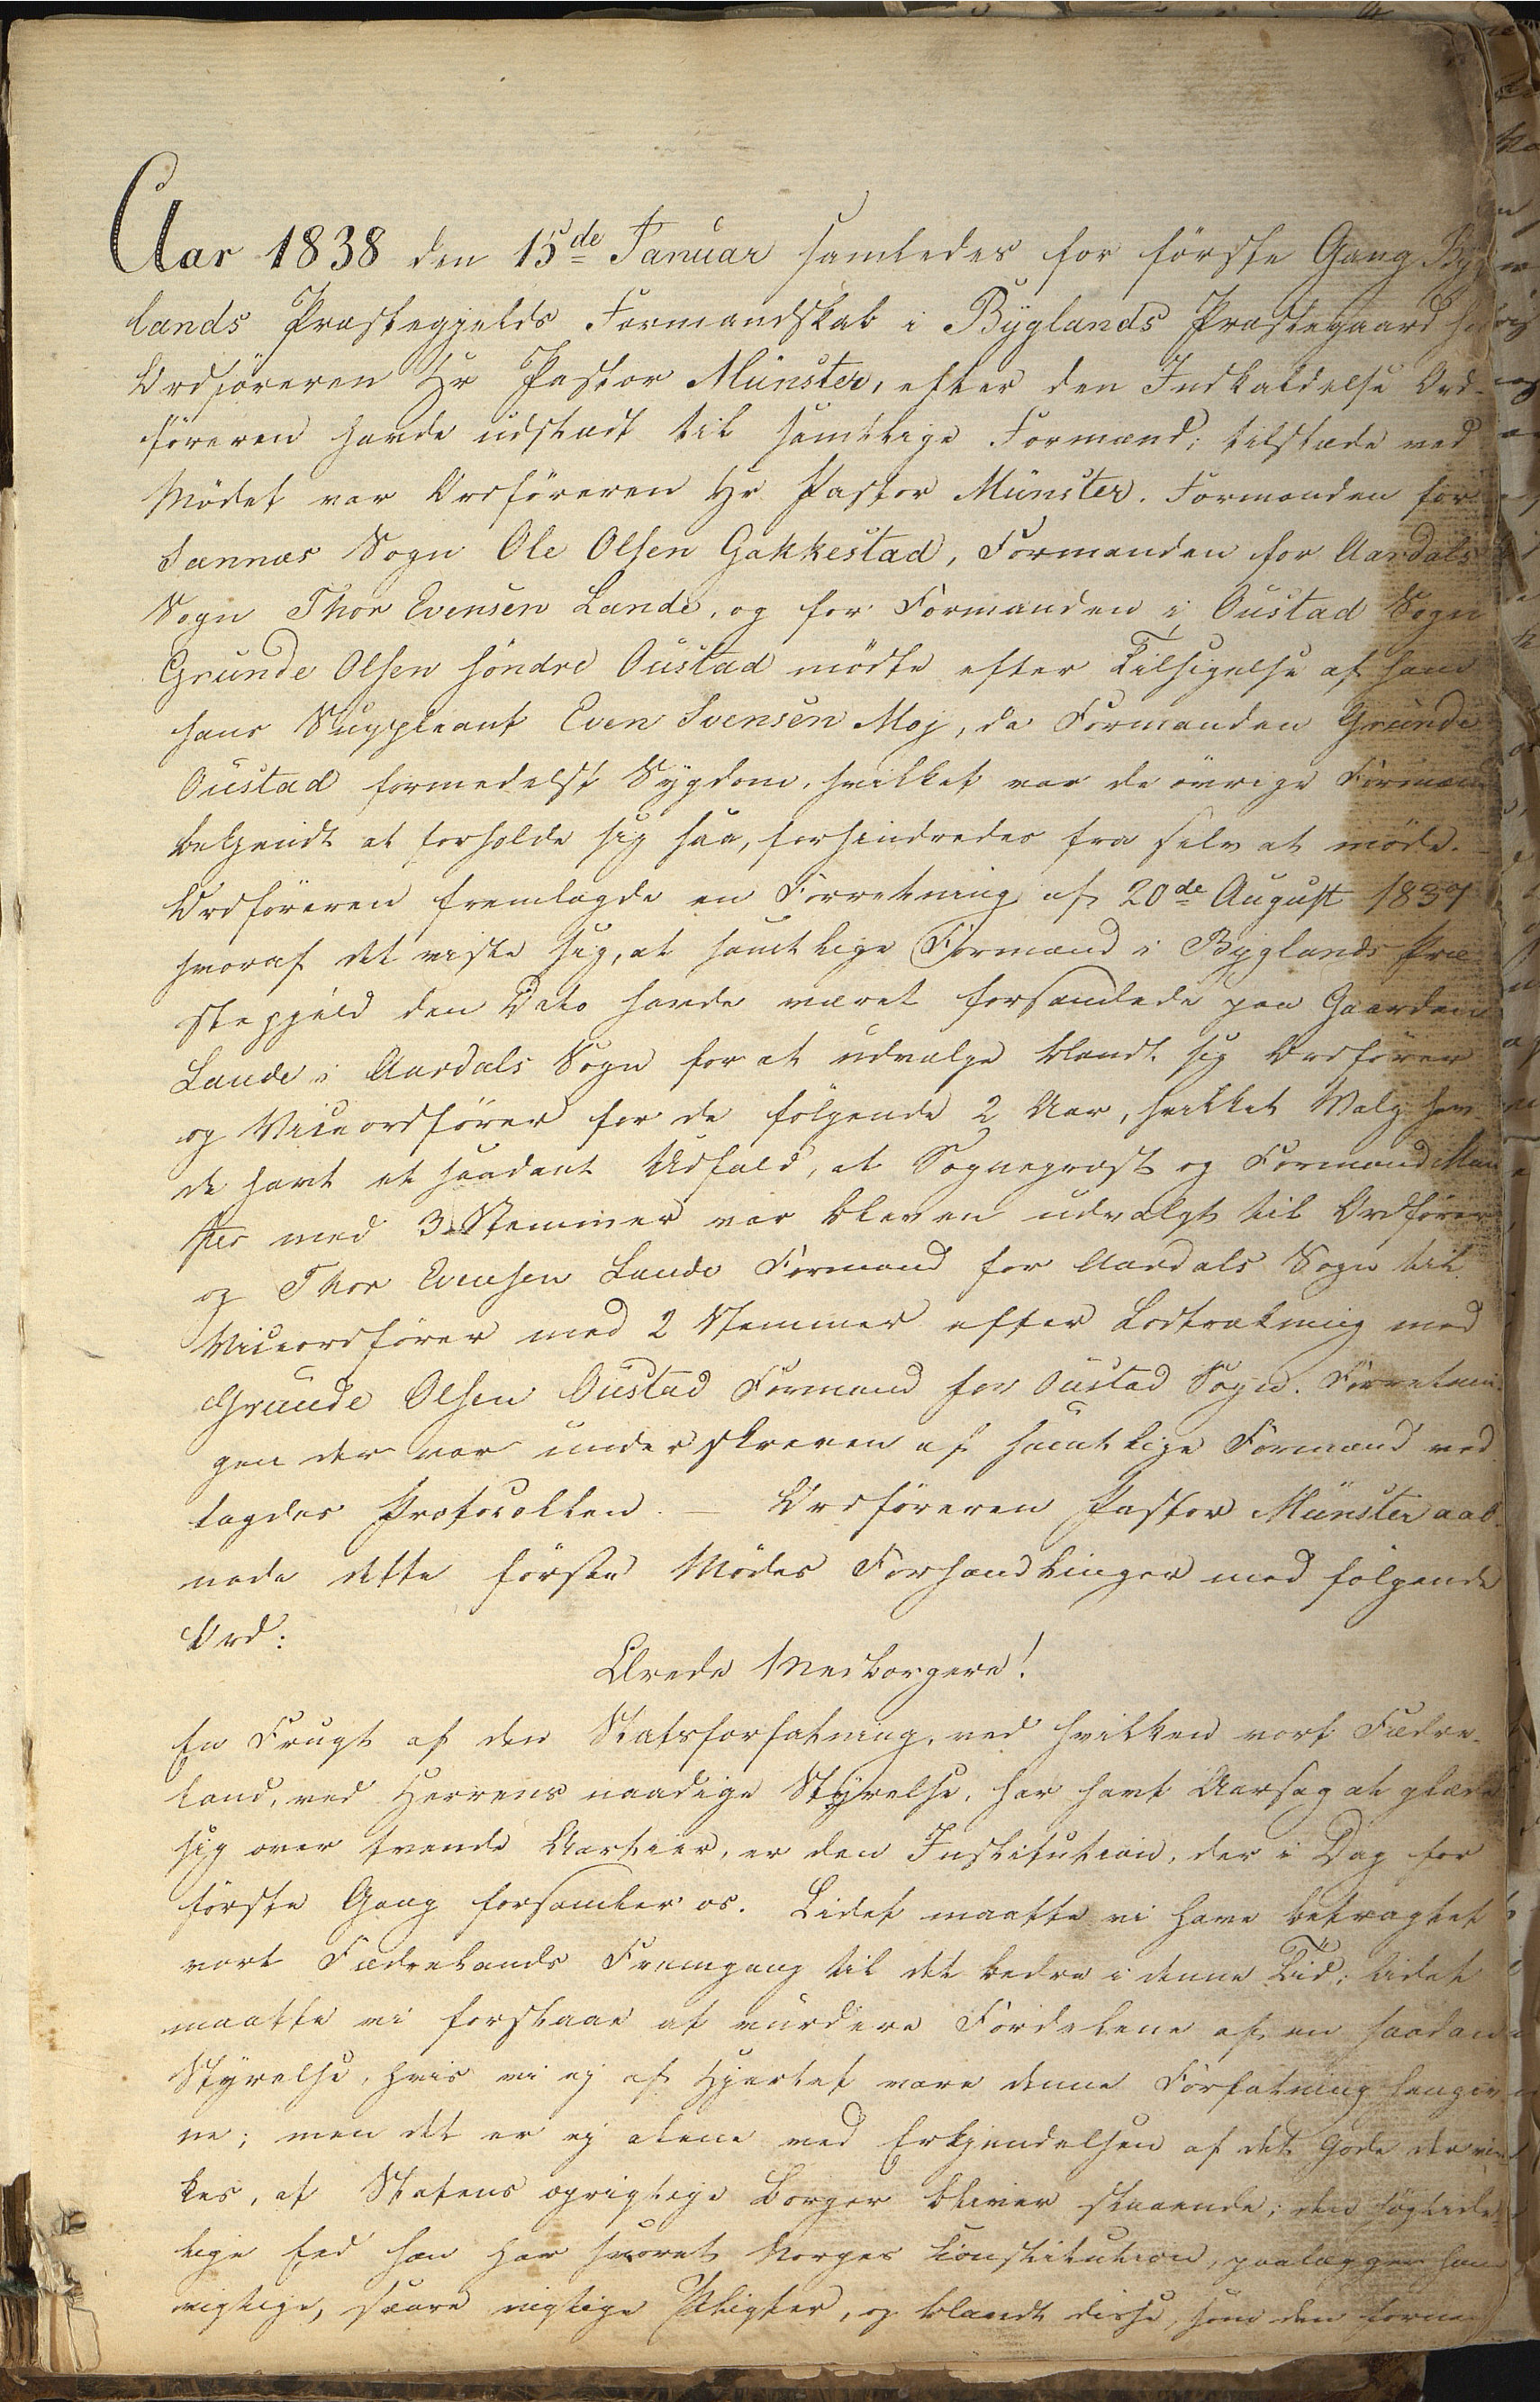 Aar 1838 den 15de Januar samledes for förste Gang Byg
lands Præstegjelds Formandskab i Byglands Præstegaard hos
Ordföreren Hr Pastor Münster, efter den Indkaldelse Ord-
föreren havde udstædt til samtlige Formænd; tilstæde ved
Mödet var Ordföreren Hr Pastor Münster. Formanden for
Sannæs Sogn Ole Olsen Gakkestad, Formanden for Aardals
Sogn Thor Evensen Lande, og for Formanden i Oustad Sogn
Grunde Olsen söndre Oustad mödte efter Tilsigelse af ham
hans Suppleant Even Svensen Moj, da Formanden Grunde
Oustad formedelst Sygdom, hvilket var de övrige Formænd
bekjendt at forholde sig saa, forhindredes fra selv at möde. –
Ordföreren fremlagde en Forretning af 20de August 1837
hvoraf det viste sig, at samtlige Formænd i Byglands Præ
stegjeld den Dato havde været forsamlede paa Gaarden
Lande i Aardals Sogn for at udvælge blandt sig Ordförer
og Viceordförer for de fölgende 2 Aar, hvilket Valg hav
de havt et saadant Udfald, at Sognepræst og Formand Mün
ster med 3 Stemmer var bleven udvalgt til Ordförer
og Thor Evensen Lande Formand for Aardals Sogn til
Viceordförer med 2 Stemmer efter Lodtrækning med
Grunde Olsen Oustad Formand for Oustad Sogn. Forretnin
gen der var underskreven af samtlige Formænd ved
lagdes Protocollen. – Ordföreren Pastor Münster aab-
nede dette förste Mödes Forhandlinger med fölgende
Ord:
Ærede Medborgere!
En Frugt af den Statsforfatning, ved hvilken vort Fædre-
land, ved Herrens naadige Styrelse, har havt Aarsag at glæde
sig over tvende Aartier, er den Institution, der i Dag for
förste Gang forsamler os. Lidet maatte vi have betragtet
vort Fædrelands Fremgang til det bedre i denne Tid; lidet
maatte vi forstaae at vurdere Fordelene af en saadan
Styrelse, hvis vi ej af Hjertet vare denne Forfatning hengiv
ne; men det er ej alene ved Erkjendelsen af det Gode der vir
kes, at Statens oprigtige Borger bliver staaende; den höjtide
lige Eed han har svoret Norges Constitution, paalægger ham
vigtige, saare vigtige Pligter, og blandt disse, som den